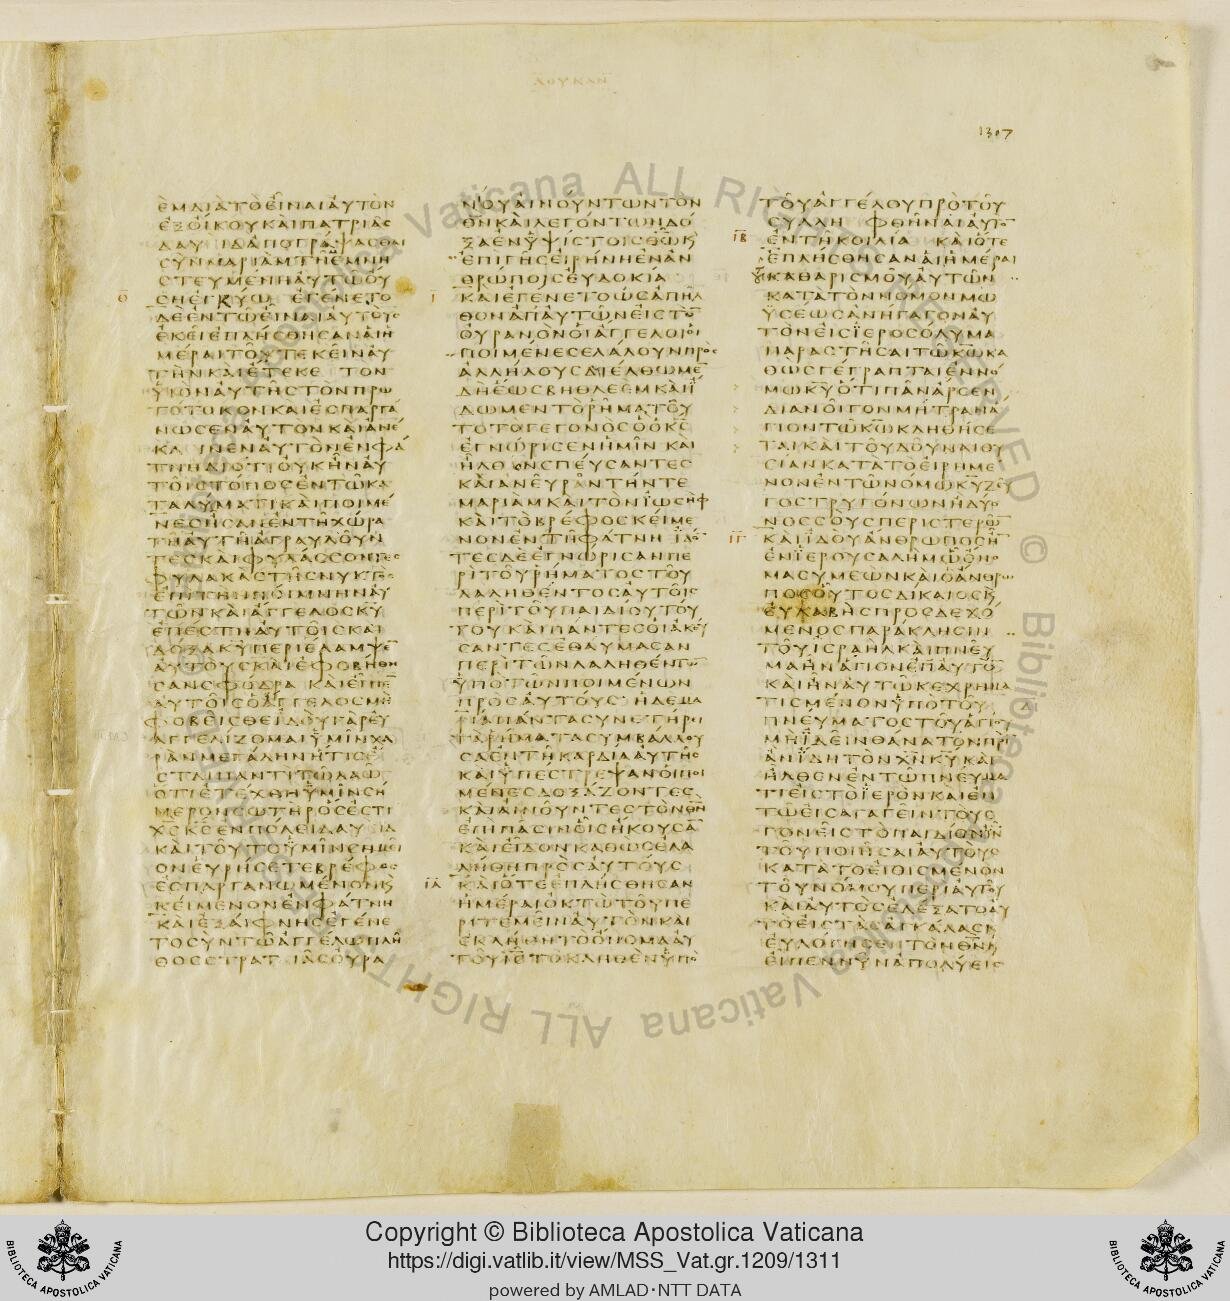 1307
ΕΜΔΙΑΤΟΕΙΝΑΙΑΥΤΟΝ
ΕΞΟΙΚΟΥΚΑΙΠΑΤΡΙΑΣ
ΔΑΥΙΔΑΠΟΓΡΑΨΑΣΘΑΙ
ΣΥΝΜΑΡΙΑΜΤΗΕΜΝΗ
ΣΤΕΥΜΕΝΗΑΥΤΩΟΥ
ΣΗΕΓΚΥΩ ΕΓΕΝΕΤΟ
ΔΕΕΝΤΩΕΙΝΑΙΑΥΤΟΥΣ
ΕΚΕΙΕΠΛΗΣΘΗΣΑΝΑΙΗ
ΜΕΡΑΙΤΟΥΤΕΚΕΙΝΑΥ
ΤΗΝΚΑΙΕΤΕΚΕ ΤΟΝ
ΥΙΟΝΑΥΤΗΣΤΟΝΠΡΩ
ΤΟΤΟΚΟΝΚΑΙΕΣΠΑΡΓΑ
ΝΩΣΕΝΑΥΤΟΝΚΑΙΑΝΕ
ΚΛΙΝΕΝΑΥΤΟΝΕΝΦΑ
ΤΝΗΔΙΟΤΙΟΥΚΗΝΑΥ
ΤΟΙΣΤΟΠΟΣΕΝΤΩΚΑ
ΤΑΛΥΜΑΤΙΚΑΙΠΟΙΜΕ
ΝΕΣΗΣΑΝΕΝΤΗΧΩΡΑ
ΤΗΑΥΤΗΑΓΡΑΥΛΟΥΝ
ΤΕΣΚΑΙΦΥΛΑΣΣΟΝΤΕΣ
ΦΥΛΑΚΑΣΤΗΣΝΥΚΤΟΣ
ΕΠΙΤΗΝΠΟΙΜΝΗΝΑΥ
ΤΩΝΚΑΙΑΓΓΕΛΟΣΚΥ
ΕΠΕΣΤΗΑΥΤΟΙΣΚΑΙ
ΔΟΞΑΚΥΠΕΡΙΕΛΑΜΨΕ
ΑΥΤΟΥΣΚΑΙΕΦΟΒΗΘΗ
ΣΑΝΣΦΟΔΡΑ ΚΑΙΕΙΠΕ
ΑΥΤΟΙΣΟΑΓΓΕΛΟΣΜΗ
ΦΟΒΕΙΣΘΕΙΔΟΥΓΑΡΕΥ
ΑΓΓΕΛΙΖΟΜΑΙΥΜΙΝΧΑ
ΡΑΝΜΕΓΑΛΗΝΗΤΙΣΕ
ΣΤΑΙΠΑΝΤΙΤΩΛΑΩ
ΟΤΙΕΤΕΧΘΗΥΜΙΝΣΗ
ΜΕΡΟΝΣΩΤΗΡΟΣΕΣΤΙ
ΧΣΚΣΕΝΠΟΛΕΙΔΑΥΙΔ
ΚΑΙΤΟΥΤΟΥΜΙΝΣΗΜΕΙ
ΟΝΕΥΡΗΣΕΤΕΒΡΕΦΟΣ
ΕΣΠΑΡΓΑΝΩΜΕΝΟΝΚ
ΚΕΙΜΕΝΟΝΕΝΦΑΤΝΗ
ΚΑΙΕΞΑΙΦΝΗΣΕΓΕΝΕ
ΤΟΣΥΝΤΩΑΓΓΕΛΩΠΛΗ
ΘΟΣΣΤΡΑΤΙΑΣΟΥΡΑ
ΝΟΥΑΙΝΟΥΝΤΩΝΤΟΝ
ΘΝΚΑΙΛΕΓΟΝΤΩΝΔΟ
ΞΑΕΝΥΨΙΣΤΟΙΣΘΩΚ
ΕΠΙΓΗΣΕΙΡΗΝΗΕΝΑΝ
ΘΡΩΠΟΙΣΕΥΔΟΚΙΑ
ΚΑΙΕΓΕΝΕΤΟΩΣΑΠΗΛ
ΘΟΝΑΠΑΥΤΩΝΕΙΣΤΟ
ΟΥΡΑΝΟΝΟΙΑΓΓΕΛΟΙΟΙ
ΠΟΙΜΕΝΕΣΕΛΑΛΟΥΝΠΡΟΣ
ΑΛΛΗΛΟΥΣΔΙΕΛΘΩΜΕ
ΔΗΕΩΣΒΗΘΛΕΕΜΚΑΙΙ
ΔΩΜΕΝΤΟΡΗΜΑΤΟΥ
ΤΟΤΟΓΕΓΟΝΟΣΟΟΚΣ
ΕΓΝΩΡΙΣΕΝΗΜΙΝ ΚΑΙ
ΗΛΘΟΝΣΠΕΥΣΑΝΤΕΣ
ΚΑΙΑΝΕΥΡΑΝΤΗΝΤΕ
ΜΑΡΙΑΜΚΑΙΤΟΝΙΩΣΗΦ
ΚΑΙΤΟΒΡΕΦΟΣΚΕΙΜΕ
ΝΟΝΕΝΤΗΦΑΤΝΗ ΙΔΟ
ΤΕΣΔΕΕΓΝΩΡΙΣΑΝΠΕ
ΡΙΤΟΥΡΗΜΑΤΟΣΤΟΥ
ΛΑΛΗΘΕΝΤΟΣΑΥΤΟΙΣ
ΠΕΡΙΤΟΥΠΑΙΔΙΟΥΤΟΥ
ΤΟΥΚΑΙΠΑΝΤΕΣΟΙΑΚΟΥ
ΣΑΝΤΕΣΕΘΑΥΜΑΣΑΝ
ΠΕΡΙΤΩΝΛΑΛΗΘΕΝΤΩ
ΥΠΟΤΩΝΠΟΙΜΕΝΩΝ
ΠΡΟΣΑΥΤΟΥΣ ΗΔΕΜΑ
ΡΙΑΠΑΝΤΑΣΥΝΕΤΗΡΕΙ
ΤΑΡΗΜΑΤΑΣΥΜΒΑΛΛΟΥ
ΣΑΕΝΤΗΚΑΡΔΙΑΑΥΤΗΣ
ΚΑΙΥΠΕΣΤΡΕΨΑΝΟΙΠΟΙ
ΜΕΝΕΣΔΟΞΑΖΟΝΤΕΣ
ΚΑΙΑΙΝΟΥΝΤΕΣΤΟΝΘΝ
ΕΠΙΠΑΣΙΝΟΙΣΗΚΟΥΣΑ
ΚΑΙΕΙΔΟΝΚΑΘΩΣΕΛΑ
ΛΗΘΗΠΡΟΣΑΥΤΟΥΣ
ΚΑΙΟΤΕΕΠΛΗΣΘΗΣΑΝ
ΗΜΕΡΑΙΟΚΤΩΤΟΥΠΕ
ΡΙΤΕΜΕΙΝΑΥΤΟΝΚΑΙ
ΕΚΛΗΘΗΤΟΟΝΟΜΑΑΥ
ΤΟΥΙΣΤΟΚΛΗΘΕΝΥΠΟ
ΤΟΥΑΓΓΕΛΟΥΠΡΟΤΟΥ
ΣΥΛΛΗΜΦΘΗΝΑΙΑΥΤΟ
ΕΝΤΗΚΟΙΛΙΑ ΚΑΙΟΤΕ
ΕΠΛΗΣΘΗΣΑΝΑΙΗΜΕΡΑΙ
ΤΟΥΚΑΘΑΡΙΣΜΟΥΑΥΤΩΝ
ΚΑΤΑΤΟΝΝΟΜΟΝΜΩ
ΥΣΕΩΣΑΝΗΓΑΓΟΝΑΥ
ΤΟΝΕΙΣΙΕΡΟΣΟΛΥΜΑ
ΠΑΡΑΣΤΗΣΑΙΤΩΚΩΚΑ
ΘΩΣΓΕΓΡΑΠΤΑΙΕΝΝΟ
ΜΩΚΥΟΤΙΠΑΝΑΡΣΕΝ
ΔΙΑΝΟΙΓΟΝΜΗΤΡΑΝΑ
ΓΙΟΝΤΩΚΩΚΛΗΘΗΣΕ
ΤΑΙΚΑΙΤΟΥΔΟΥΝΑΙΘΥ
ΣΙΑΝΚΑΤΑΤΟΕΙΡΗΜΕ
ΝΟΝΕΝΤΩΝΟΜΩΚΥΖΕΥ
ΓΟΣΤΡΥΓΟΝΩΝΗΔΥΟ
ΝΟΣΣΟΥΣΠΕΡΙΣΤΕΡΩ
ΚΑΙΙΔΟΥΑΝΘΡΩΠΟΣΗ
ΕΝΙΕΡΟΥΣΑΛΗΜΩΟΝΟ
ΜΑΣΥΜΕΩΝΚΑΙΟΑΝΘΡΩ
ΠΟΣΟΥΤΟΣΔΙΚΑΙΟΣΚ
ΕΥΛΑΒΗΣΠΡΟΣΔΕΧΟ
ΜΕΝΟΣΠΑΡΑΚΛΗΣΙΝ
ΤΟΥΙΣΡΑΗΛΚΑΙΠΝΕΥ
ΜΑΗΝΑΓΙΟΝΕΠΑΥΤΟ
ΚΑΙΗΝΑΥΤΩΚΕΧΡΗΜΑ
ΤΙΣΜΕΝΟΝΥΠΟΤΟΥ
ΠΝΕΥΜΑΤΟΣΤΟΥΑΓΙΟΥ
ΜΗΙΔΕΙΝΘΑΝΑΤΟΝΠΡΙ
ΑΝΙΔΗΤΟΝΧΝΚΥΚΑΙ
ΗΛΘΕΝΕΝΤΩΠΝΕΥΜΑ
ΤΙΕΙΣΤΟΙΕΡΟΝΚΑΙΕΝ
ΤΩΕΙΣΑΓΑΓΕΙΝΤΟΥΣ
ΓΟΝΕΙΣΤΟΠΑΙΔΙΟΝΙΝ
ΤΟΥΠΟΙΗΣΑΙΑΥΤΟΥΣ
ΚΑΤΑΤΟΕΙΘΙΣΜΕΝΟΝ
ΤΟΥΝΟΜΟΥΠΕΡΙΑΥΤΟΥ
ΚΑΙΑΥΤΟΣΕΔΕΞΑΤΟΑΥ
ΤΟΕΙΣΤΑΣΑΓΚΑΛΑΣΚ
ΕΥΛΟΓΗΣΕΝΤΟΝΘΝΚ
ΕΙΠΕΝΝΥΝΑΠΟΛΥΕΙΣ
Copyright © Biblioteca Apostolica Vaticana
https://digi.vatlib.it/view/MSS_Vat.gr.1209/1311
powered by AMLAD·NTT DATA